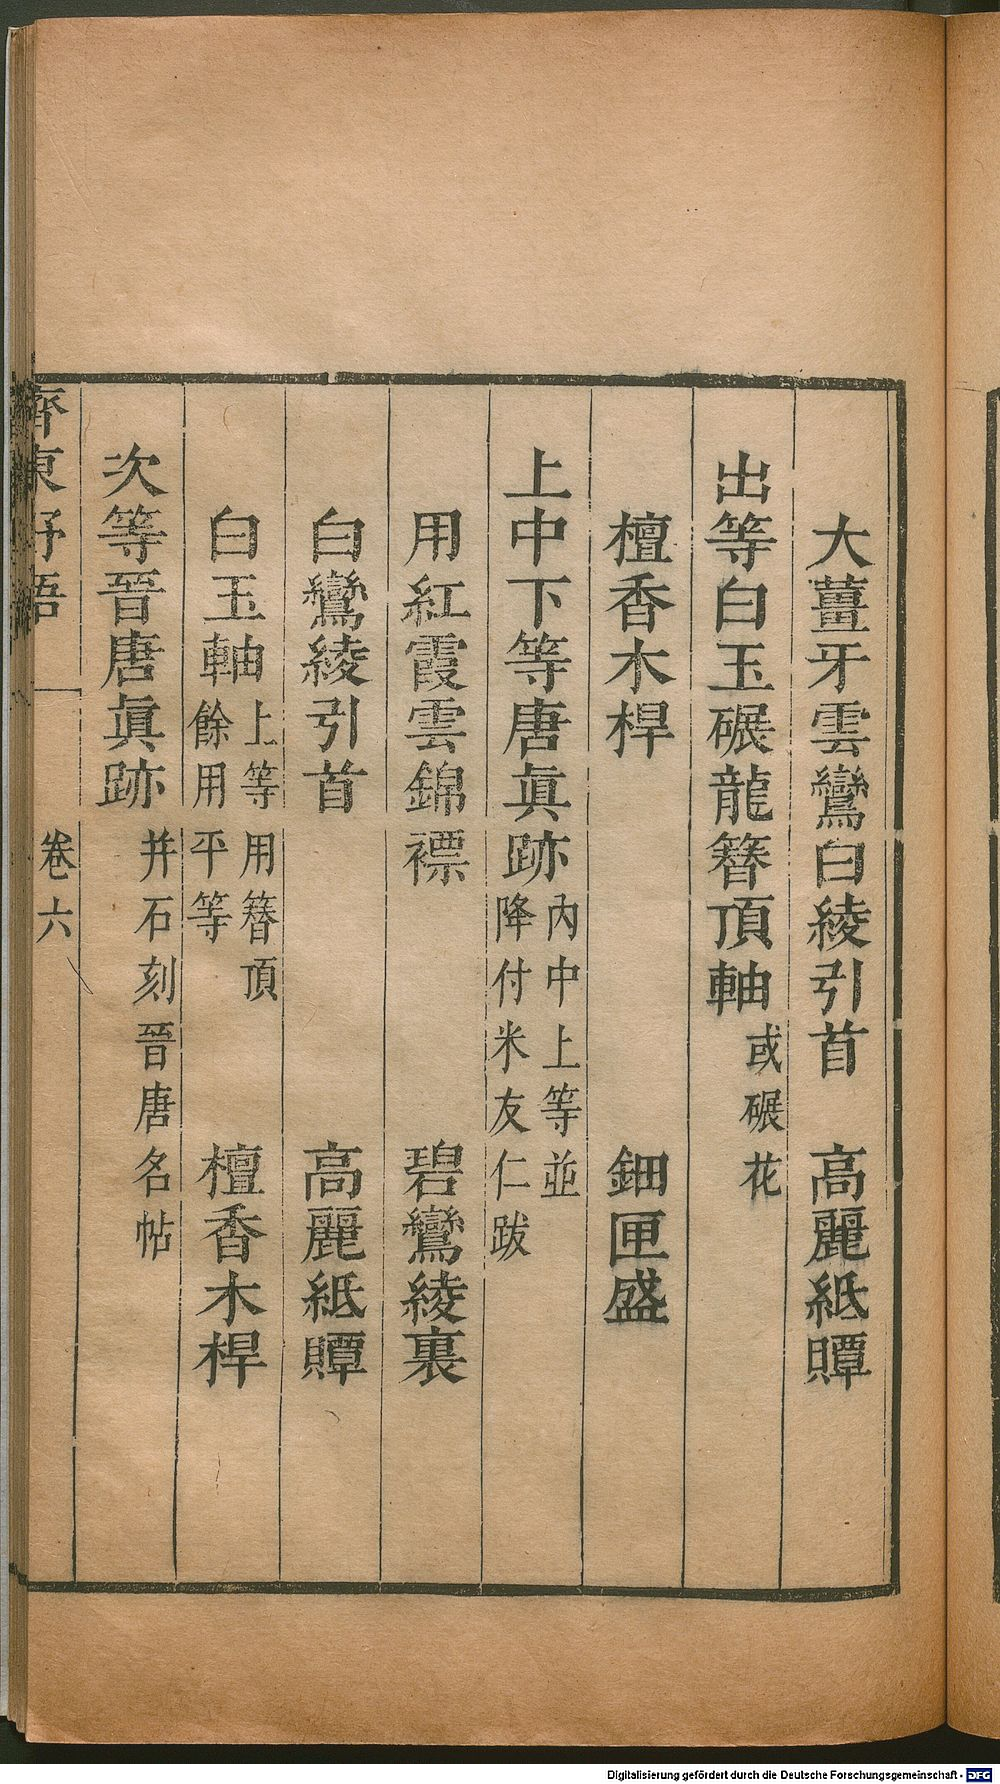 大薑牙雲鸞白綾引首　高麗紙贉
出等白玉碾龍簪頂軸或碾花
檀香木桿　鈿匣盛
上中下等唐眞跡內中上等並降付米友仁跋
用紅霞雲錦褾　碧鸞綾裏
白鸞綾引首　高麗紙贉
白玉軸上等用簪頂餘用平等　檀香木桿
次等晉唐眞跡幷石刻晉唐名帖
齊東野語　卷六
Digitalisierung gefördert durch die Deutsche Forschungsgemeinschaft - DFG